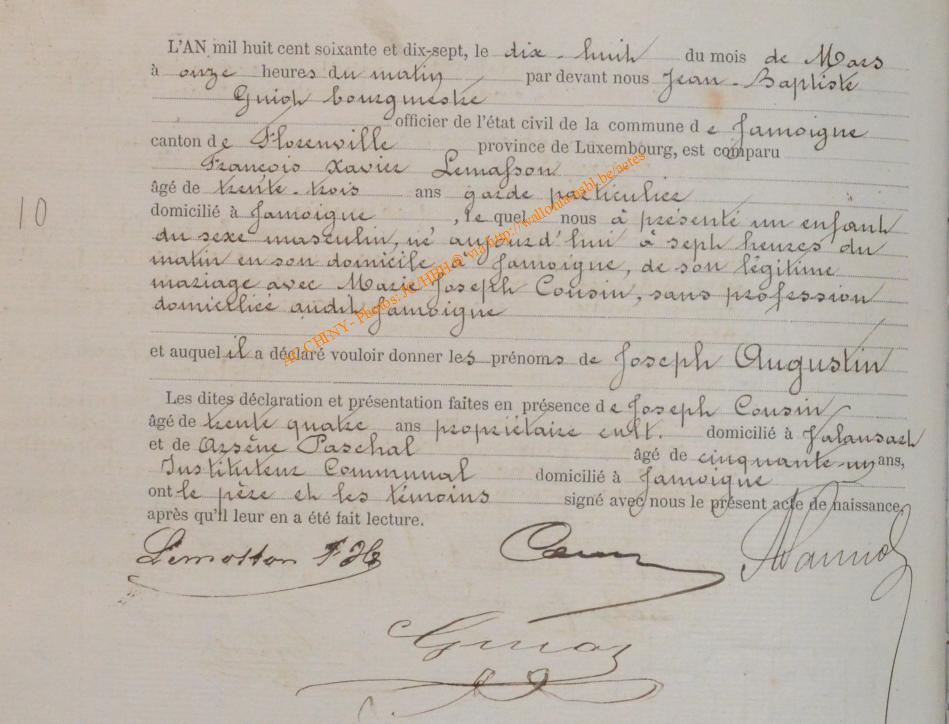 L'AN mil huit cent soixante et dix-sept, le dix-huit du mois de Mars
à onze heures du matin par devant nous Jean-Baptiste
bourgmestre
officier de l'état civil de la commune de Jamoigne
canton de Florenville province de Luxembourg, est comparu
François Xavier Lemasson
âgé de trente-trois ans garde particulier
10
domicilié à Jamoigne, lequel nous a présenté un enfant
du sexe masculin, né aujourd'hui à sept heures du
matin en son domicile à Jamoigne, de son légitime
mariage avec Marie Joseph Cousin, sans profession
domiciliée audit Jamoigne
et auquel il a déclaré vouloir donner les prénoms de Joseph Augustin
Les dites déclaration et présentation faites en présence de Joseph Cousin
âgé de trente quatre ans propriétaire cult. domicilié à
et de Arsène Paschal âgé de cinquante-un ans,
Instituteur Communal domicilié à Jamoigne
ont le père et les témoins signé avec nous le présent acte de naissance
après qu'il leur en a été fait lecture.
Lemasson F
AG CHINY - Photos: JC/HBH@ via http://wallonia-asbl.be/actes